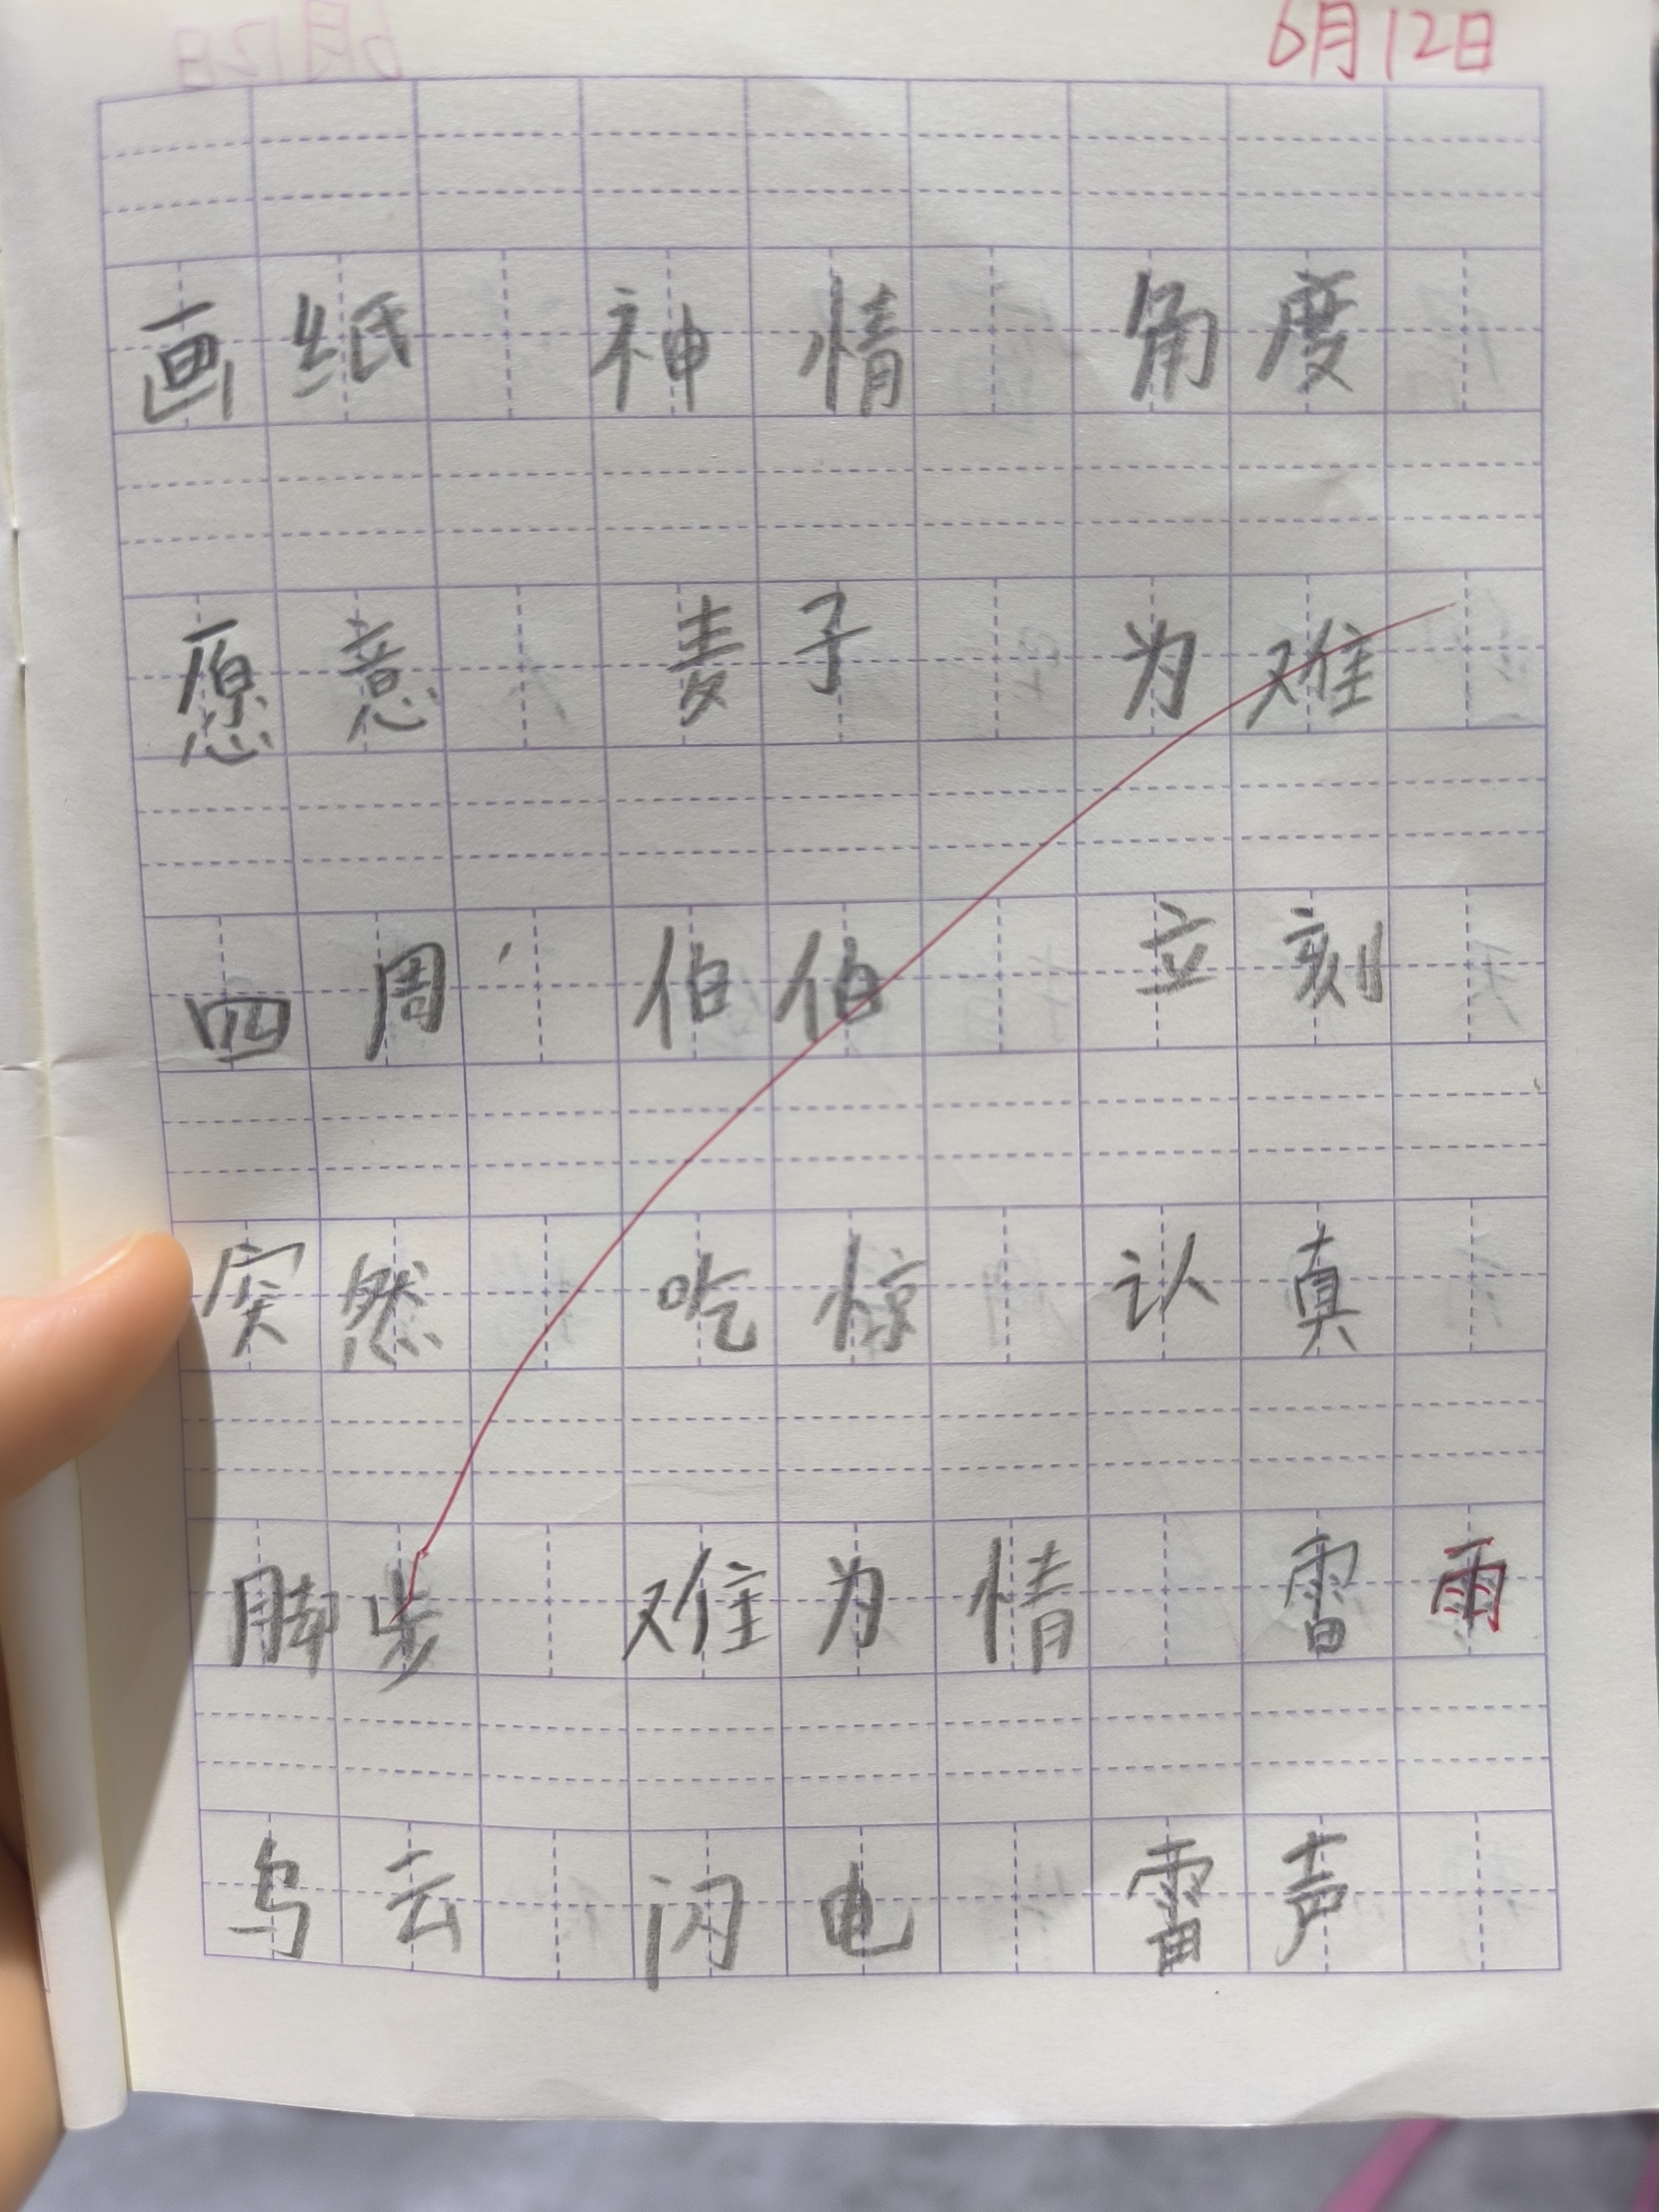 6月12日
画纸 神情 角度
愿意 麦子 为难
四周 伯伯 立刻
突然 吃惊 认真
脚步 难为情 雷雨
乌云 闪电 雷声